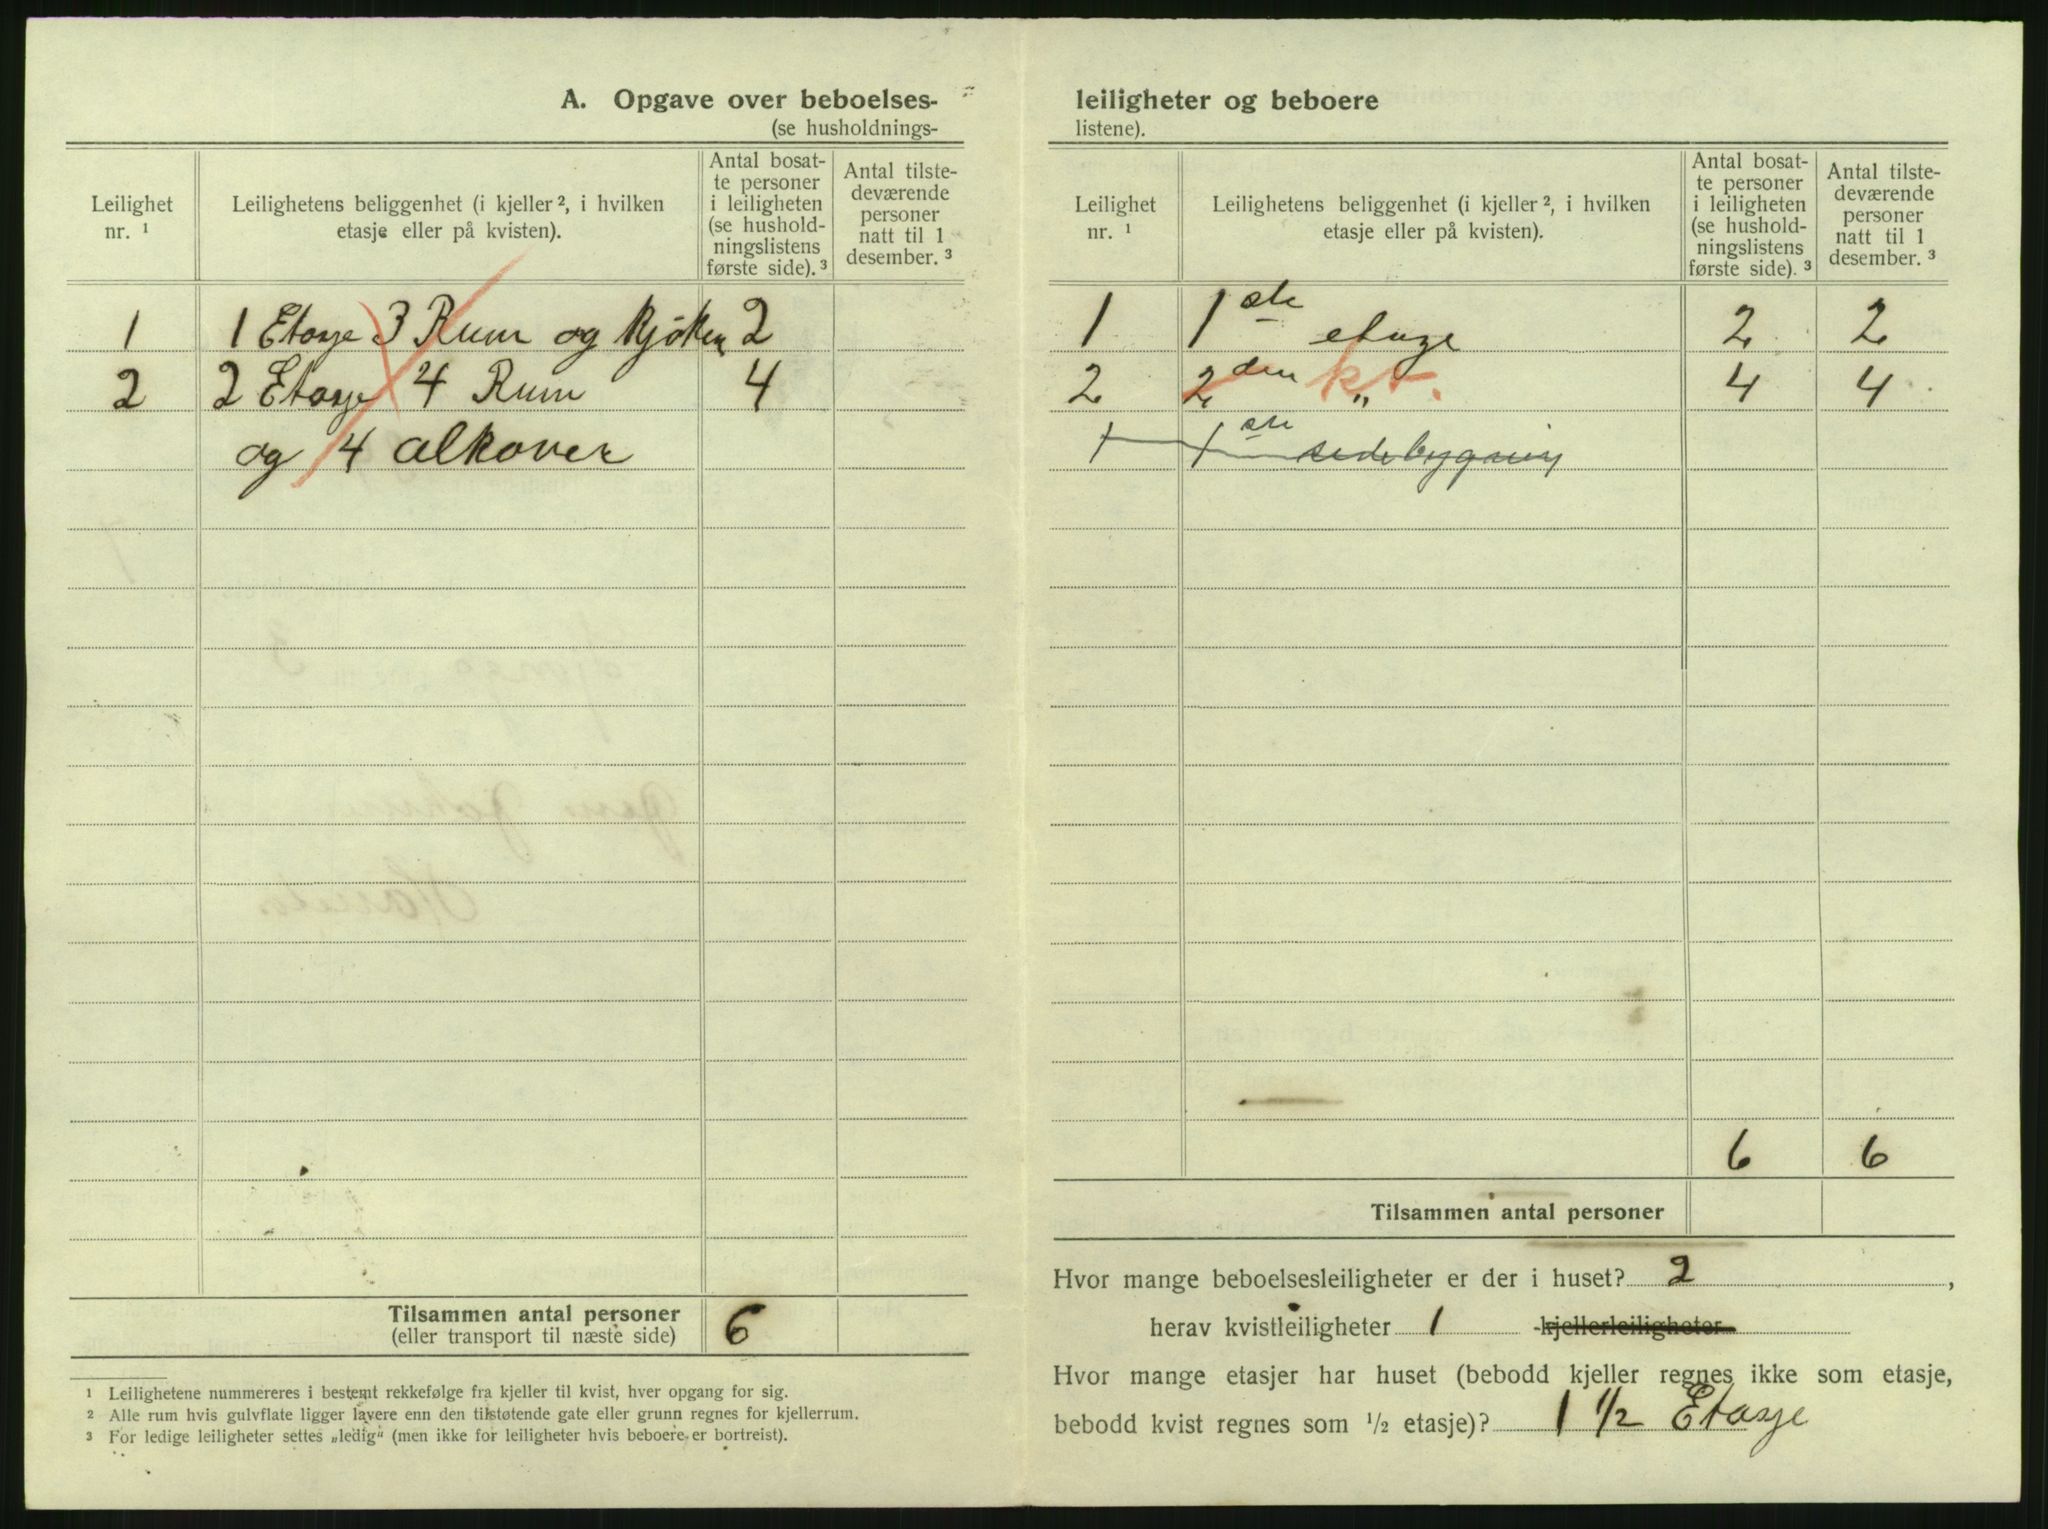 A. Opgave over beboelses-
(se husholdnings-
Leilighet
nr. ¹
Leilighetens beliggenhet (i kjeller ², i hvilken
etasje eller på kvisten).
Antal bosat-
te personer
i leiligheten
(se hushold-
ningslistens
første side). ³
Antal tilste-
deværende
personer
natt til 1
desember. ³
1 1 Etasje 3 Rum og kjøken 2
2 2 Etasje 4 Rum 4
og 4 alkover
Tilsammen antal personer
(eller transport til næste side) 6
¹ Leilighetene nummereres i bestemt rekkefølge fra kjeller til kvist, hver opgang for sig.
² Alle rum hvis gulvflate ligger lavere enn den tilstøtende gate eller grunn regnes for kjellerrum.
³ For ledige leiligheter settes „ledig“ (men ikke for leiligheter hvis beboere er bortreist).
leiligheter og beboere
listene).
Leilighet
nr. ¹
Leilighetens beliggenhet (i kjeller ², i hvilken
etasje eller på kvisten).
Antal bosat-
te personer
i leiligheten
(se hushold-
ningslistens
første side). ³
Antal tilste-
deværende
personer
natt til 1
desember. ³
1 1ste etage 2 2
2 2den „ kv. 4 4
1 1ste sidebygning
6 6
Tilsammen antal personer
Hvor mange beboelsesleiligheter er der i huset? 2 ,
herav kvistleiligheter 1 kjellerleiligheter
Hvor mange etasjer har huset (bebodd kjeller regnes ikke som etasje,
bebodd kvist regnes som ½ etasje)? 1 ½ Etasje